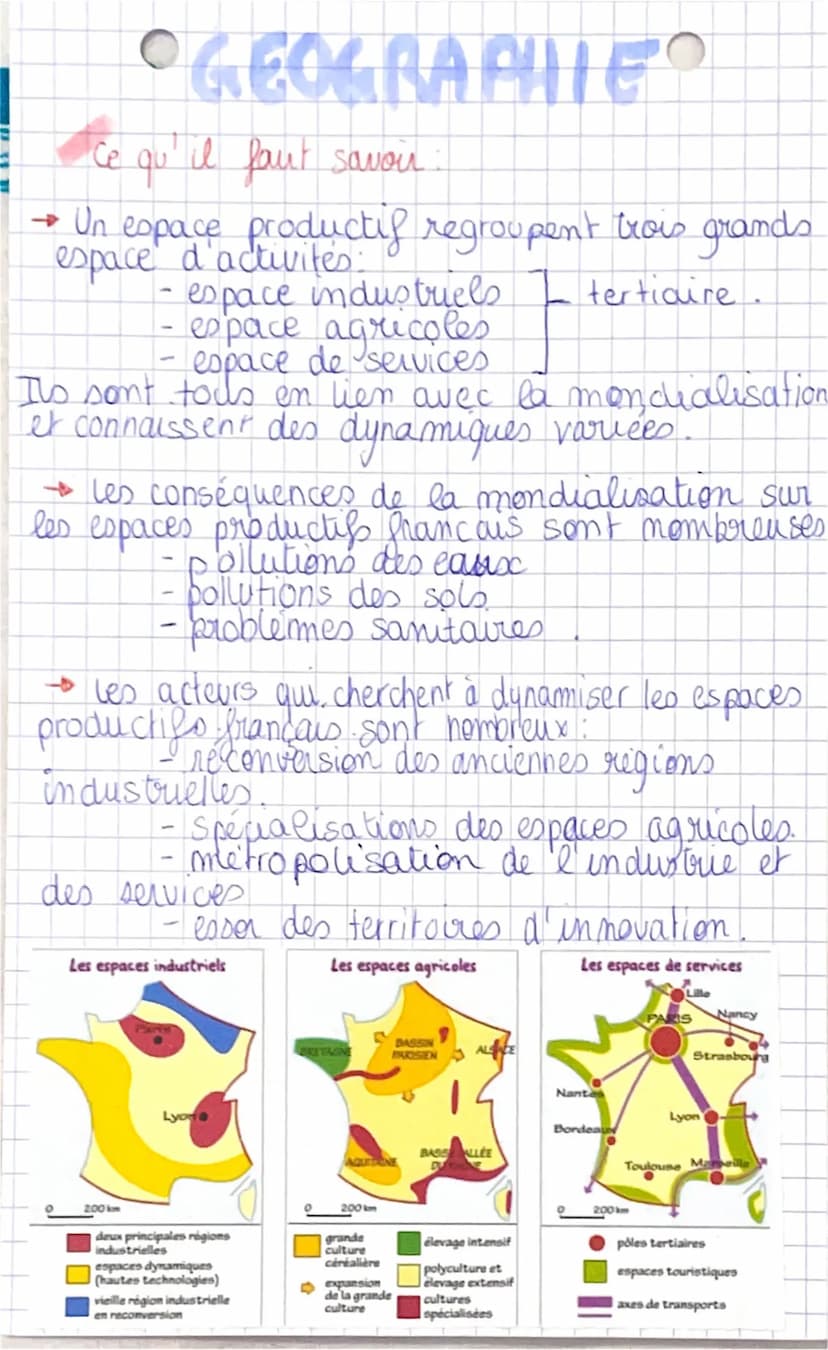 GEOGRAPHIE
Ce qu'il faut savoir :
→ Un espace productif regroupent trois grands
espace d'activités:
- espace industriels
tertiaire.
- espace agricoles
- espace de services
Ils sont tous en lien avec la mondialisation
et connaissent des dynamiques variées.
→ Les conséquences de la mondialisation sur
les espaces productifs français sont nombreuses
- pollutions des eaux
- pollutions des sols
- problèmes sanitaires.
→ Les acteurs qui cherchent à dynamiser les espaces
productifs français sont nombreux :
- reconversion des anciennes régions
industrielles.
- spécialisations des espaces agricoles.
- métropolisation de l'industrie et
des services
- essor des territoires d'innovation.
Les espaces industriels
Paris
Lyon
0 200 km
deux principales régions
industrielles
espaces dynamiques
(hautes technologies)
vieille région industrielle
en reconversion
Les espaces agricoles
BRETAGNE
BASSIN
PARISIEN
ALSACE
AQUITAINE
0 200 km
grande
culture
céréalière
expansion
de la grande
culture
élevage intensif
polyculture et
élevage extensif
cultures
spécialisées
Les espaces de services
Lille
PARIS
Nancy
Strasbourg
Nantes
Lyon
Bordeaux
Toulouse
Marseille
0 200 km
pôles tertiaires
espaces touristiques
axes de transports